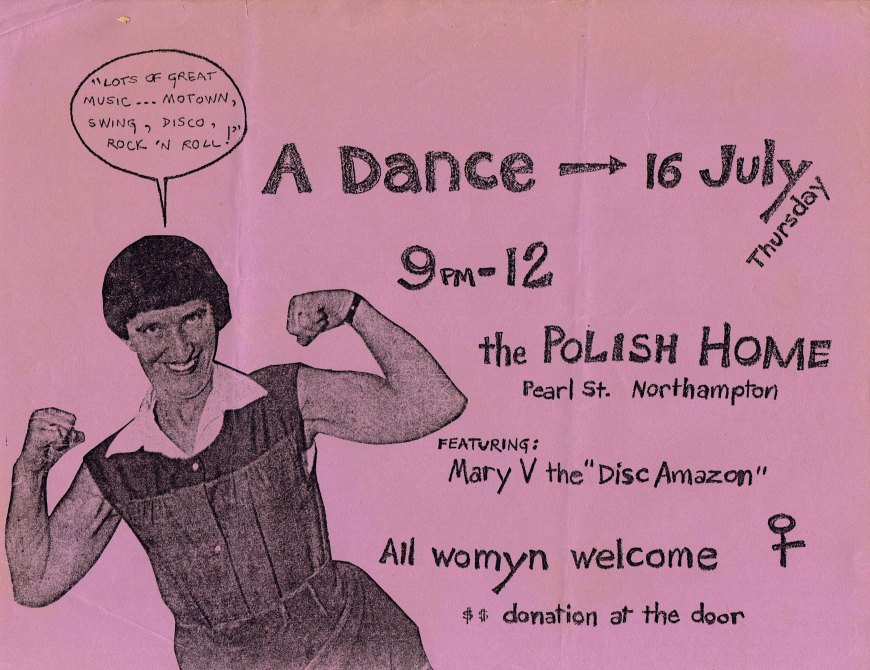 "LOTS OF GREAT
MUSIC... MOTOWN,
SWING, DISCO,
ROCK 'N ROLL!"
A Dance → 16 July
Thursday
9PM-12
the POLISH HOME
Pearl St. Northampton
FEATURING:
Mary V the "Disc Amazon"
All womyn welcome ♀
$$ donation at the door